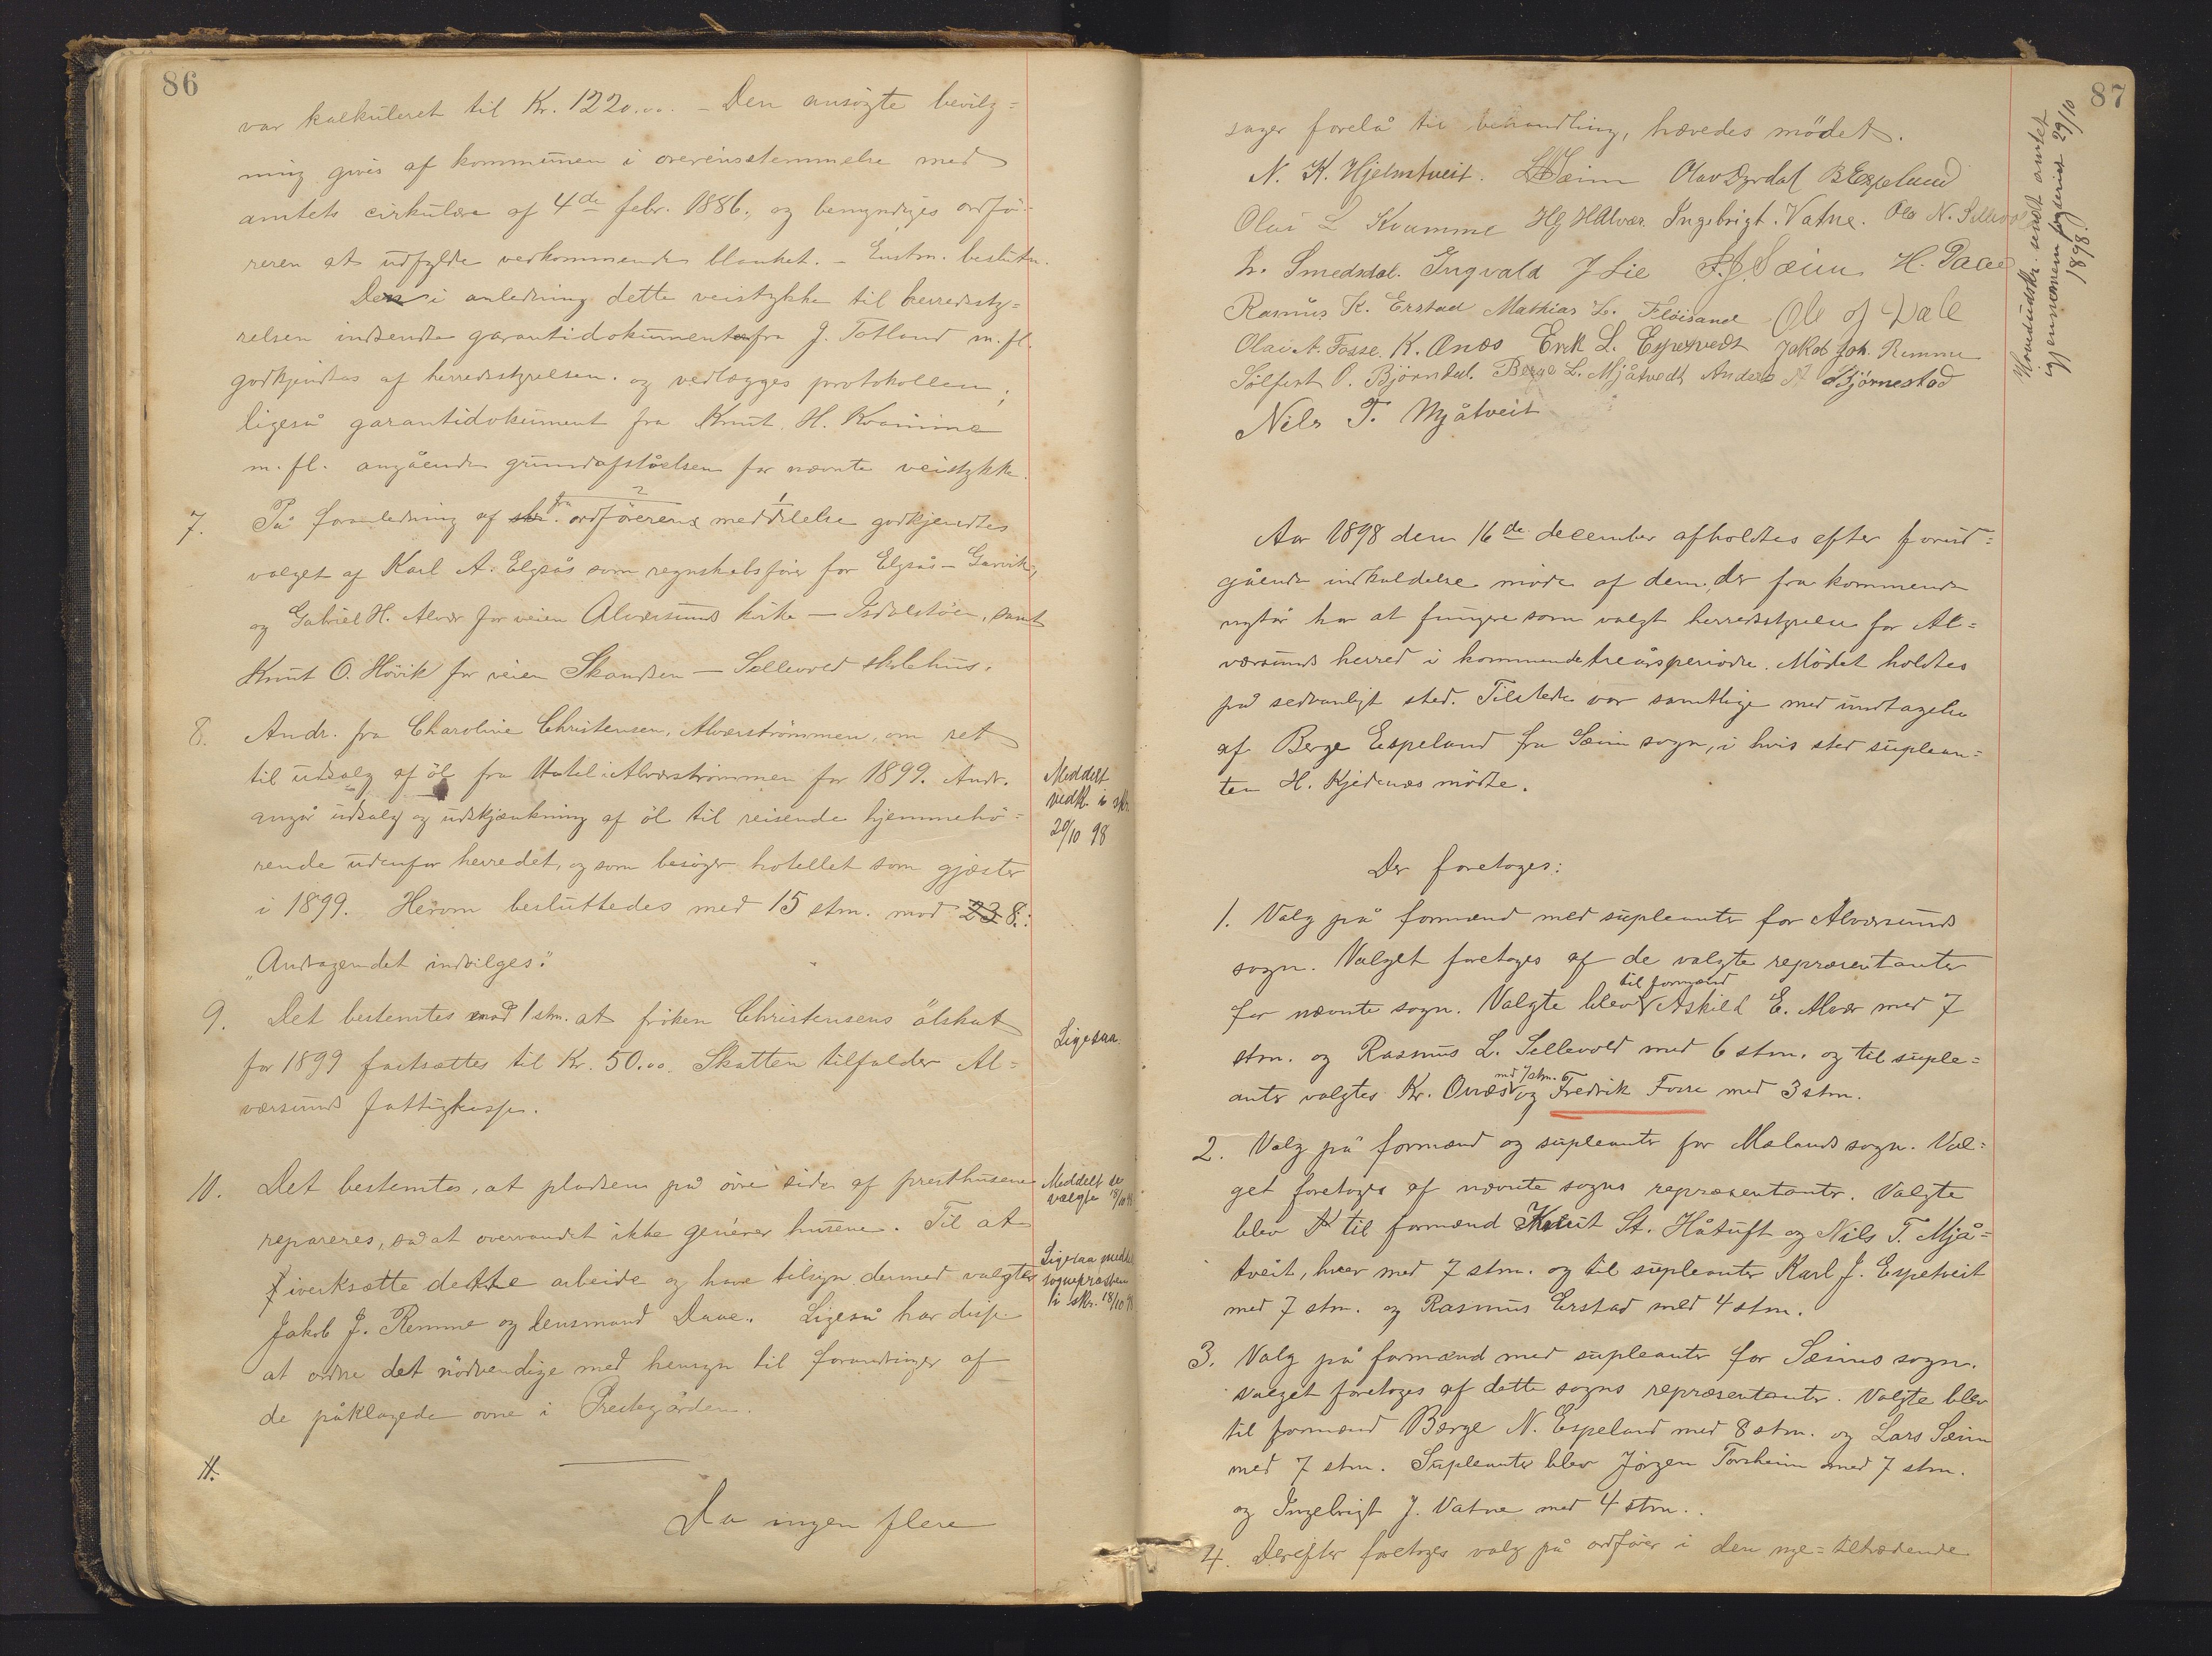 86
var kalkuleret til Kr. 1220.00. – Den ansögte bevilg=
ning gives af kommunen i overensstemmelse med
amtets cirkulære af 4de febr. 1886, og bemyndiges ordfö-
reren at udfylde vedkommende blanket. – Enstm. beslutn.
Den i anledning dette veistykke til herredssty=
relsen indsendte garantidokument fra J. Totland m. fl.
godkjendtes af herredsstyrelsen og vedlægges protokollen;
ligeså garantidokument fra Knut H. Kvamme
m. fl. angående grundafståelsen for nævnte veistykke.
7. På foranledning af skr. fra ordförerens meddelelse godkjendtes
valget af Karl A. Elgsås som regnskabsförer for Elgsås – Garvik,
og Gabriel H. Alvær for veien Alversunds kirke – Isdalstöen, samt
Knut O. Hövik for veien Skandsen – Sellevold skolehus.
8. Andr. fra Charoline Christensen, Alverströmmen, om ret
til udsalg af öl fra Hotel Alverströmmen for 1899. Andr.
angår udsalg og udskjænkning af öl til reisende hjemmehö=
rende udenfor herredet, og som besöger hotellet som gjæster
i 1899. Herom besluttedes med 15 stm. mod 23 8.:
„Andragendet indvilges."
Meddelt
vedk. i skr.
20/10 98
9. Det bestemtes mod 1 stm. at fröken Christensens ölskat
for 1899 fastsættes til Kr. 50.00. Skatten tilfalder Al=
versunds fattigkasse.
Ligesaa.
10. Det bestemtes, at pladsen på övre side af presthusene
repareres, så at overvandet ikke generer husene. Til at
iverksætte dette arbeide og have tilsyn dermed valgtes
Jakob J. Remme og lensmand Daae. Ligeså har disse
at ordne det nödvendige med hensyn til forandringer af
de påklagede ovne i Prestegården.
Meddelt de
valgte 18/10 98
Ligesaa meddelt
sognepræsten
i skr. 18/10 98
11.
Da ingen flere
87
sager forelå til behandling, hævedes mödet.
N. K. Hjelmtveit. L Sæim Olav Dyrdal B Espelund
Olai L Kvamme Hg H Alvær. Ingebrigt. Vatne. Ole N. Sellevold
L. Smedsdal. Ingvald J Lie F. J. Sæim H. Daae
Rasmus K. Erstad Mathias L. Flöisand Ole J Dale
Olai A. Fosse. K. Onæs Erik L. Espetvedt Jakob Joh. Remme
Sölfest O. Björndal. Berge L. Mjåtvedt Anders A Björnestad
Nils T. Mjåtveit
Hovedudskr. sendt amtet
igjennem fogderiet 29/10
1898.
Aar 1898 den 16de december afholdtes efter forud=
gående indkaldelse möde af dem, der fra kommende
nytår har at fungere som valgt herredsstyrelse for Al=
versunds herred i kommende treårsperiode. Mödet holdtes
på sedvanligt sted. Tilstede var samtlige med undtagelse
af Berge Espeland fra Sæim sogn, i hvis sted suplean=
ten H. Kjedenæs mödte.
Der foretoges:
1. Valg på formænd med supleanter for Alversunds
sogn. Valget foretoges af de valgte repræsentanter
for nævnte sogn. Valgte blev til formænd Askild E. Alvær med 7
stm. og Rasmus L. Sellevold med 6 stm. og til suple=
anter valgtes Kr. Onæs med 7 stm. og Fredrik Fosse med 3 stm.
2. Valg på formænd og supleanter for Mælands sogn. Val=
get foretoges af nævnte sogns repræsentanter. Valgte
blev til formænd Knut St. Håtuft og Nils T. Mjå=
tveit, hver med 7 stm. og til supleanter Karl J. Espetveit
med 7 stm. og Rasmus Erstad med 4 stm.
3. Valg på formænd med supleanter for Sæims sogn.
Valget foretoges af dette sogns repræsentanter. Valgte blev
til formænd Berge N. Espeland med 8 stm. og Lars Sæim
med 7 stm. Supleanter blev Jörgen Torsheim med 7 stm.
og Ingebrigt J. Vatne med 4 stm.
4. Derefter foretoges valg på ordförer i den nye-tiltrædende